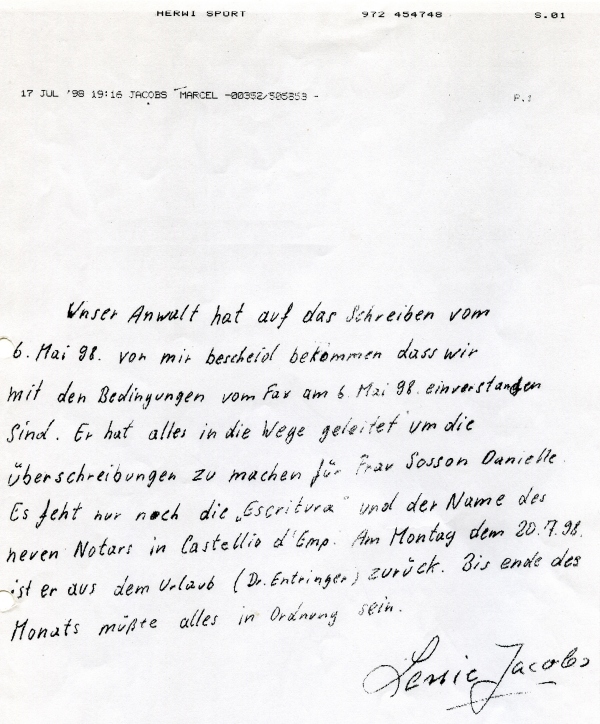 HERWI SPORT 972 454748 S.01
17 JUL '98 19:16 JACOBS MARCEL -00352/505353 - P.1
Unser Anwalt hat auf das Schreiben vom
6. Mai 98. von mir bescheid bekommen dass wir
mit den Bedingungen vom Fax am 6. Mai 98. einverstanden
Sind. Er hat alles in die Wege geleitet um die
überschreibungen zu machen für Frau Sosson Danielle.
Es feht nur noch die „Escritura" und der Name des
neuen Notars in Castellio d'Emp. Am Montag dem 20.7.98.
ist er aus dem Urlaub (Dr. Entringer) zurück. Bis ende des
Monats müßte alles in Ordnung sein.
Jacobs